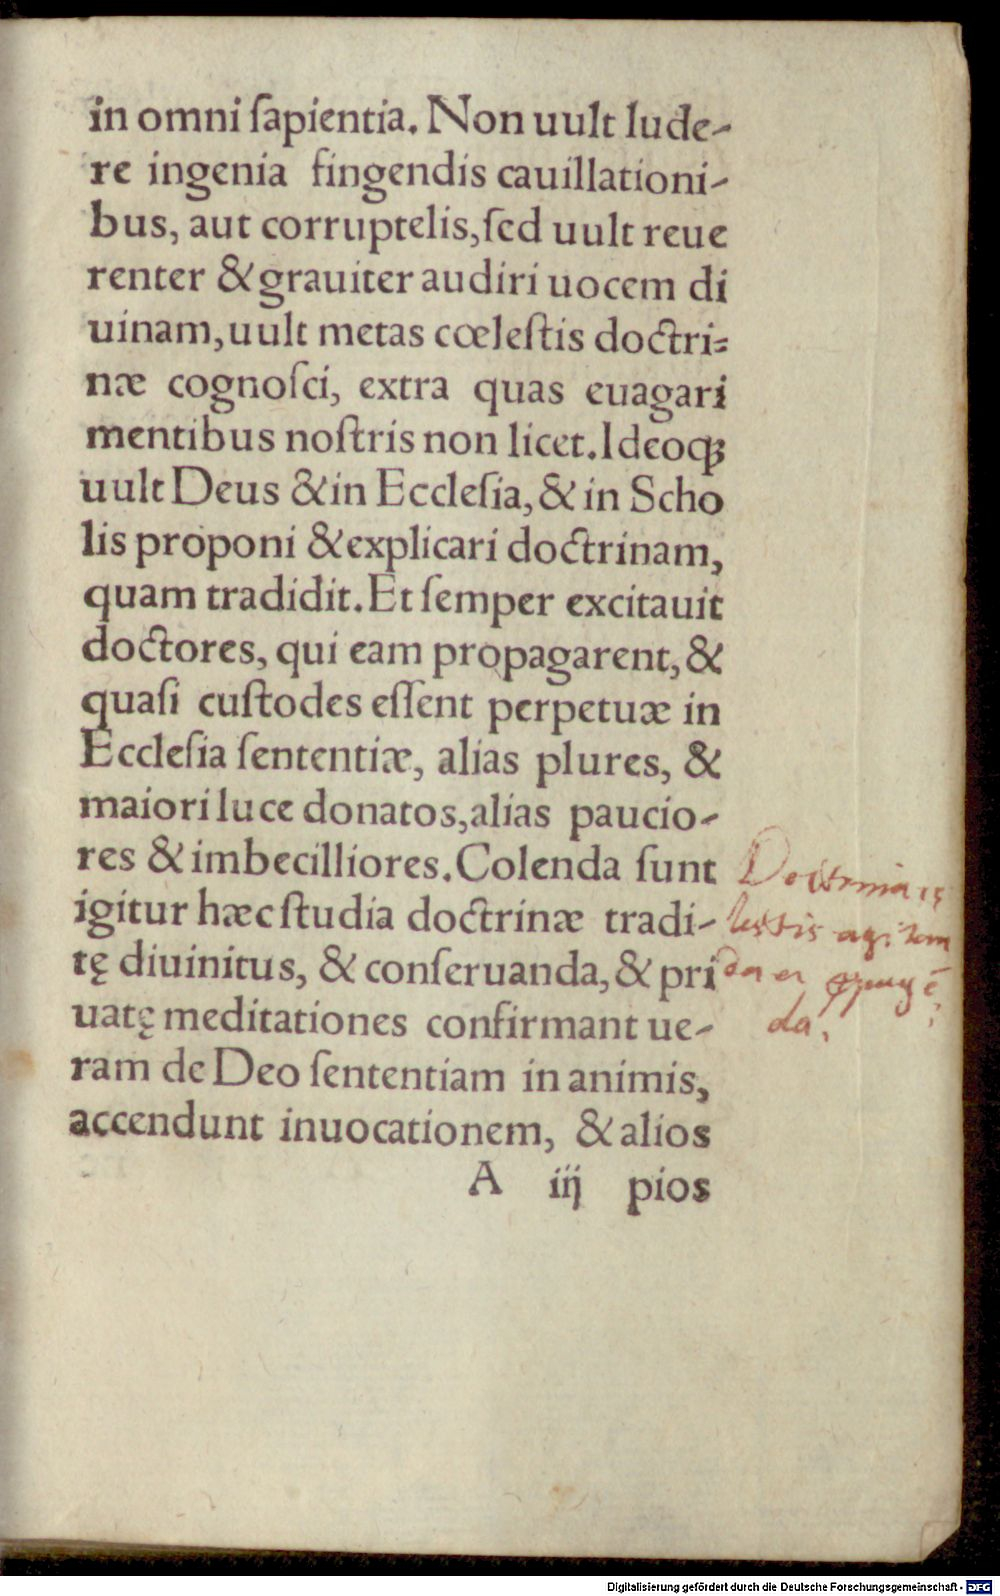 in omni ſapientia. Non uult lude-
re ingenia fingendis cauillationi-
bus, aut corruptelis, ſed uult reue
renter & grauiter audiri uocem di
uinam, uult metas cœleſtis doctri=
næ cognoſci, extra quas euagari
mentibus noſtris non licet. Ideoqꝫ
uult Deus & in Eccleſia, & in Scho
lis proponi & explicari doctrinam,
quam tradidit. Et ſemper excitauit
doctores, qui eam propagarent, &
quaſi cuſtodes eſſent perpetuæ in
Eccleſia ſententiæ, alias plures, &
maiori luce donatos, alias paucio-
res & imbecilliores. Colenda ſunt
igitur hæc ſtudia doctrinæ tradi-
tę diuinitus, & conſeruanda, & pri
uatę meditationes confirmant ue-
ram de Deo ſententiam in animis,
accendunt inuocationem, & alios
A iij pios
Doctrina
lestis
da et
da.
Digitalisierung gefördert durch die Deutsche Forschungsgemeinschaft - DFG